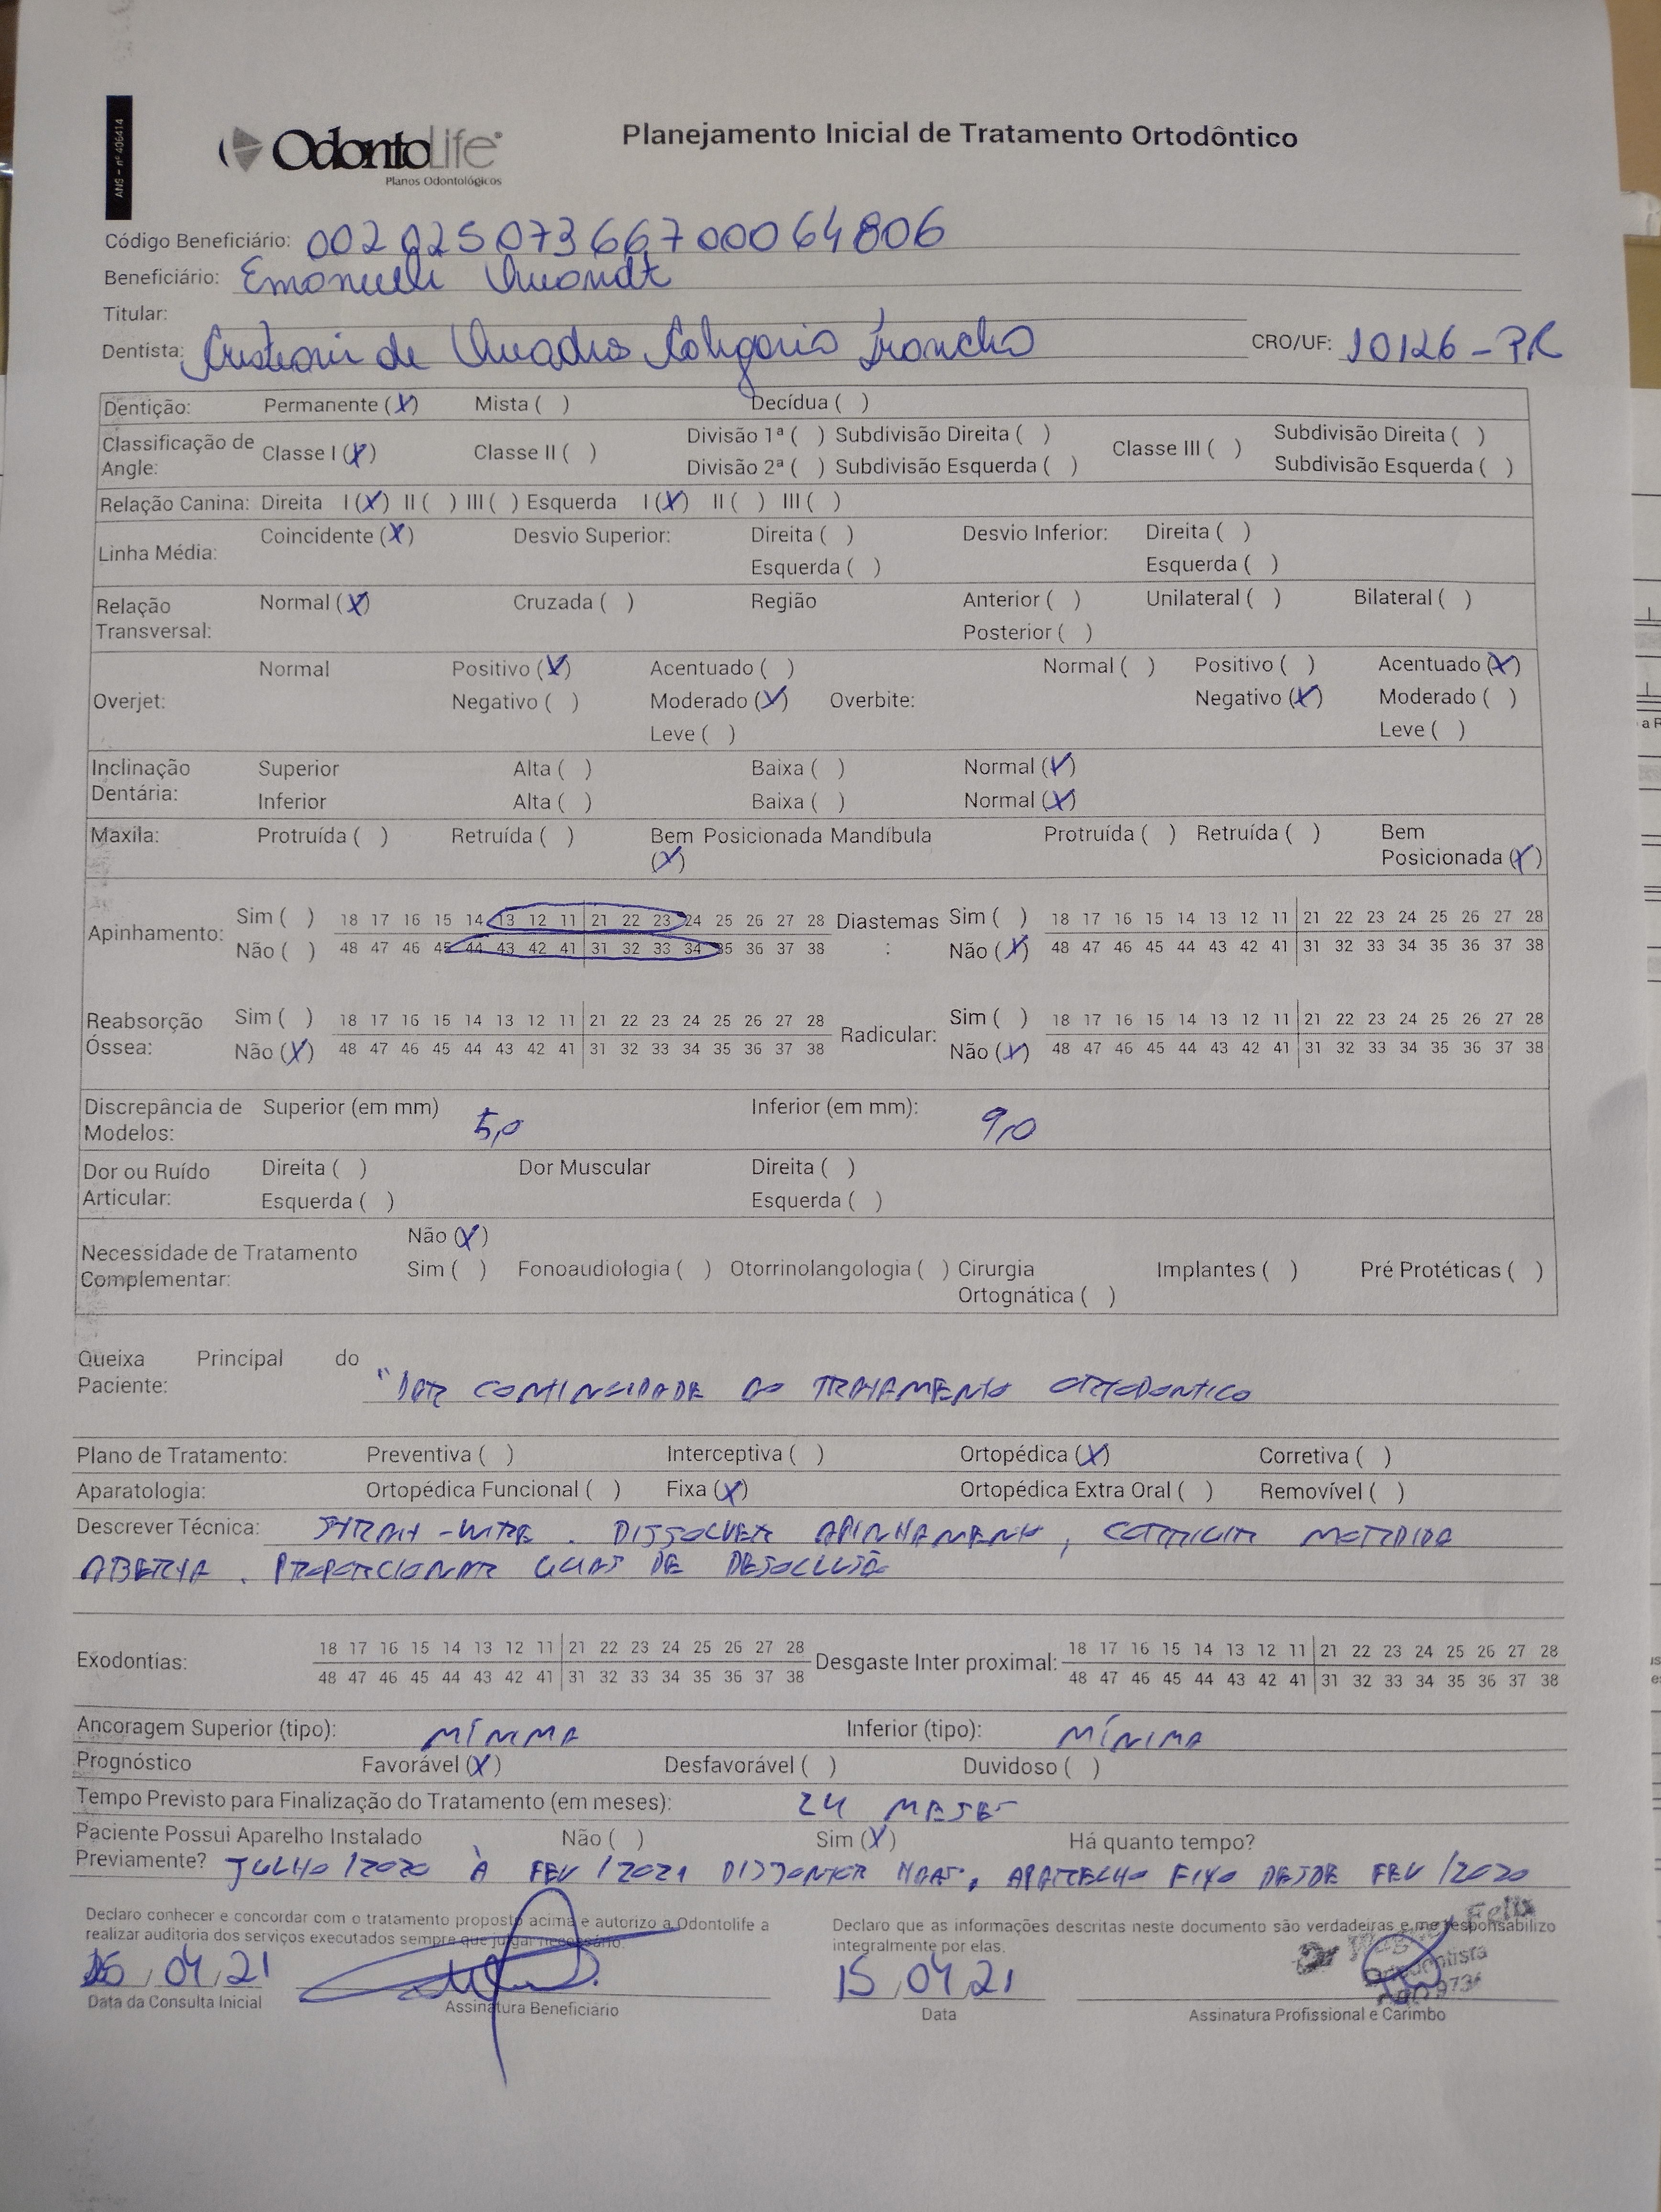 ANS - nº 406414
OdontoLife
Planos Odontológicos
Planejamento Inicial de Tratamento Ortodôntico
Código Beneficiário: 00202507366700064806
Beneficiário: Emanuelli Quandt
Titular:
Dentista: de Quadros CRO/UF: 10126-PR
Dentição: Permanente (X) Mista ( ) Decídua ( )
Classificação de Angle: Classe I (X) Classe II ( ) Divisão 1ª ( ) Subdivisão Direita ( ) Classe III ( ) Subdivisão Direita ( )
Divisão 2ª ( ) Subdivisão Esquerda ( ) Subdivisão Esquerda ( )
Relação Canina: Direita I (X) II ( ) III ( ) Esquerda I (X) II ( ) III ( )
Linha Média: Coincidente (X) Desvio Superior: Direita ( ) Desvio Inferior: Direita ( )
Esquerda ( ) Esquerda ( )
Relação Transversal: Normal (X) Cruzada ( ) Região Anterior ( ) Unilateral ( ) Bilateral ( )
Posterior ( )
Normal Positivo (X) Acentuado ( ) Normal ( ) Positivo ( ) Acentuado (X)
Overjet: Negativo ( ) Moderado (X) Overbite: Negativo (X) Moderado ( )
Leve ( ) Leve ( )
Inclinação Dentária: Superior Alta ( ) Baixa ( ) Normal (X)
Inferior Alta ( ) Baixa ( ) Normal (X)
Maxila: Protruída ( ) Retruída ( ) Bem Posicionada (X) Mandíbula Protruída ( ) Retruída ( ) Bem Posicionada (X)
Apinhamento: Sim ( ) 18 17 16 15 14 13 12 11 21 22 23 24 25 26 27 28 Diastemas : Sim ( ) 18 17 16 15 14 13 12 11 21 22 23 24 25 26 27 28
Não ( ) 48 47 46 45 44 43 42 41 31 32 33 34 35 36 37 38 Não (X) 48 47 46 45 44 43 42 41 31 32 33 34 35 36 37 38
Reabsorção Óssea: Sim ( ) 18 17 16 15 14 13 12 11 21 22 23 24 25 26 27 28 Radicular: Sim ( ) 18 17 16 15 14 13 12 11 21 22 23 24 25 26 27 28
Não (X) 48 47 46 45 44 43 42 41 31 32 33 34 35 36 37 38 Não (X) 48 47 46 45 44 43 42 41 31 32 33 34 35 36 37 38
Discrepância de Modelos: Superior (em mm) 5,0 Inferior (em mm): 9,0
Dor ou Ruído Articular: Direita ( ) Dor Muscular Direita ( )
Esquerda ( ) Esquerda ( )
Necessidade de Tratamento Complementar: Não (X)
Sim ( ) Fonoaudiologia ( ) Otorrinolangologia ( ) Cirurgia Ortognática ( ) Implantes ( ) Pré Protéticas ( )
Queixa Principal do Paciente: "DAR CONTINUIDADE AO TRATAMENTO ORTODONTICO
Plano de Tratamento: Preventiva ( ) Interceptiva ( ) Ortopédica (X) Corretiva ( )
Aparatologia: Ortopédica Funcional ( ) Fixa (X) Ortopédica Extra Oral ( ) Removível ( )
Descrever Técnica: -WIRE. DISSOLVER APINHAMENTO, CORRIGIR MORDIDA
ABERTA. PROPORCIONAR GUIAS DE DESOCLUSÃO
Exodontias: 18 17 16 15 14 13 12 11 21 22 23 24 25 26 27 28 Desgaste Inter proximal: 18 17 16 15 14 13 12 11 21 22 23 24 25 26 27 28
48 47 46 45 44 43 42 41 31 32 33 34 35 36 37 38 48 47 46 45 44 43 42 41 31 32 33 34 35 36 37 38
Ancoragem Superior (tipo): MÍNIMA Inferior (tipo): MÍNIMA
Prognóstico Favorável (X) Desfavorável ( ) Duvidoso ( )
Tempo Previsto para Finalização do Tratamento (em meses): 24 MESES
Paciente Possui Aparelho Instalado Não ( ) Sim (X) Há quanto tempo?
Previamente? JULHO/2020 À FEV/2021 DISJUNTOR HAAS, APARELHO FIXO DESDE FEV/2020
Declaro conhecer e concordar com o tratamento proposto acima e autorizo a Odontolife a
realizar auditoria dos serviços executados sempre que julgar necessário.
Declaro que as informações descritas neste documento são verdadeiras e me responsabilizo
integralmente por elas.
15/04/21 15/04/21
Data da Consulta Inicial Assinatura Beneficiário Data Assinatura Profissional e Carimbo
Felix
Ortodontista